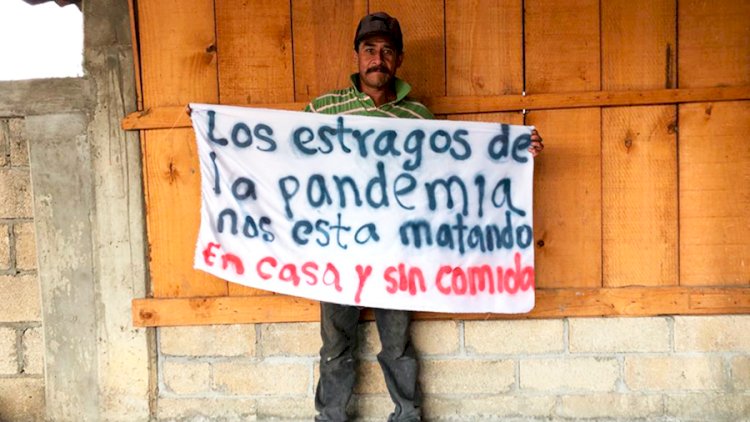 Los estragos de
la pandemia
nos esta matando
En casa y sin comida